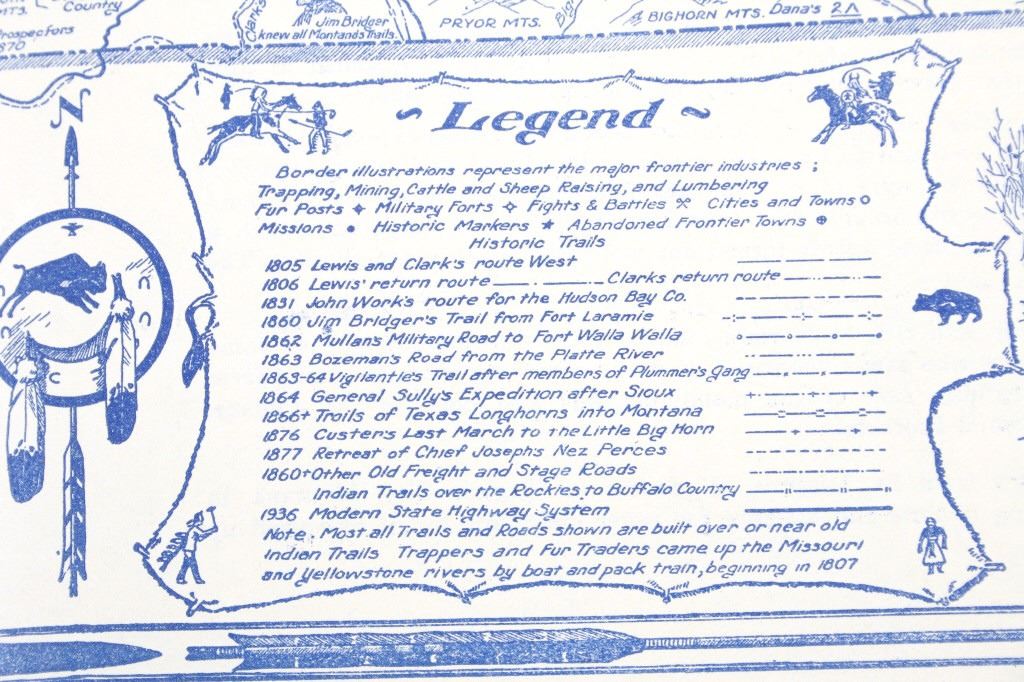 MTS.
Country
Prospectors
1870
Clarks
Jim Bridger
knew all Montana's Trails.
PRYOR MTS.
BIGHORN MTS. Dana's 2
N
~ Legend ~
Border illustrations represent the major frontier industries ;
Trapping, Mining, Cattle and Sheep Raising, and Lumbering
Fur Posts Military Forts Fights & Battles Cities and Towns
Missions Historic Markers Abandoned Frontier Towns
Historic Trails
1805 Lewis and Clark's route West
1806 Lewis' return route Clarks return route
1831 John Work's route for the Hudson Bay Co.
1860 Jim Bridger's Trail from Fort Laramie
1862 Mullan's Military Road to Fort Walla Walla
1863 Bozeman's Road from the Platte River
1863-64 Vigilantie's Trail after members of Plummer's Gang
1864 General Sully's Expedition after Sioux
1866+ Trails of Texas Longhorns into Montana
1876 Custer's Last March to the Little Big Horn
1877 Retreat of Chief Joseph's Nez Perces
1860+ Other Old Freight and Stage Roads
Indian Trails over the Rockies to Buffalo Country
1936 Modern State Highway System
Note. Most all Trails and Roads shown are built over or near old
Indian Trails Trappers and Fur Traders came up the Missouri
and Yellowstone rivers by boat and pack train, beginning in 1807